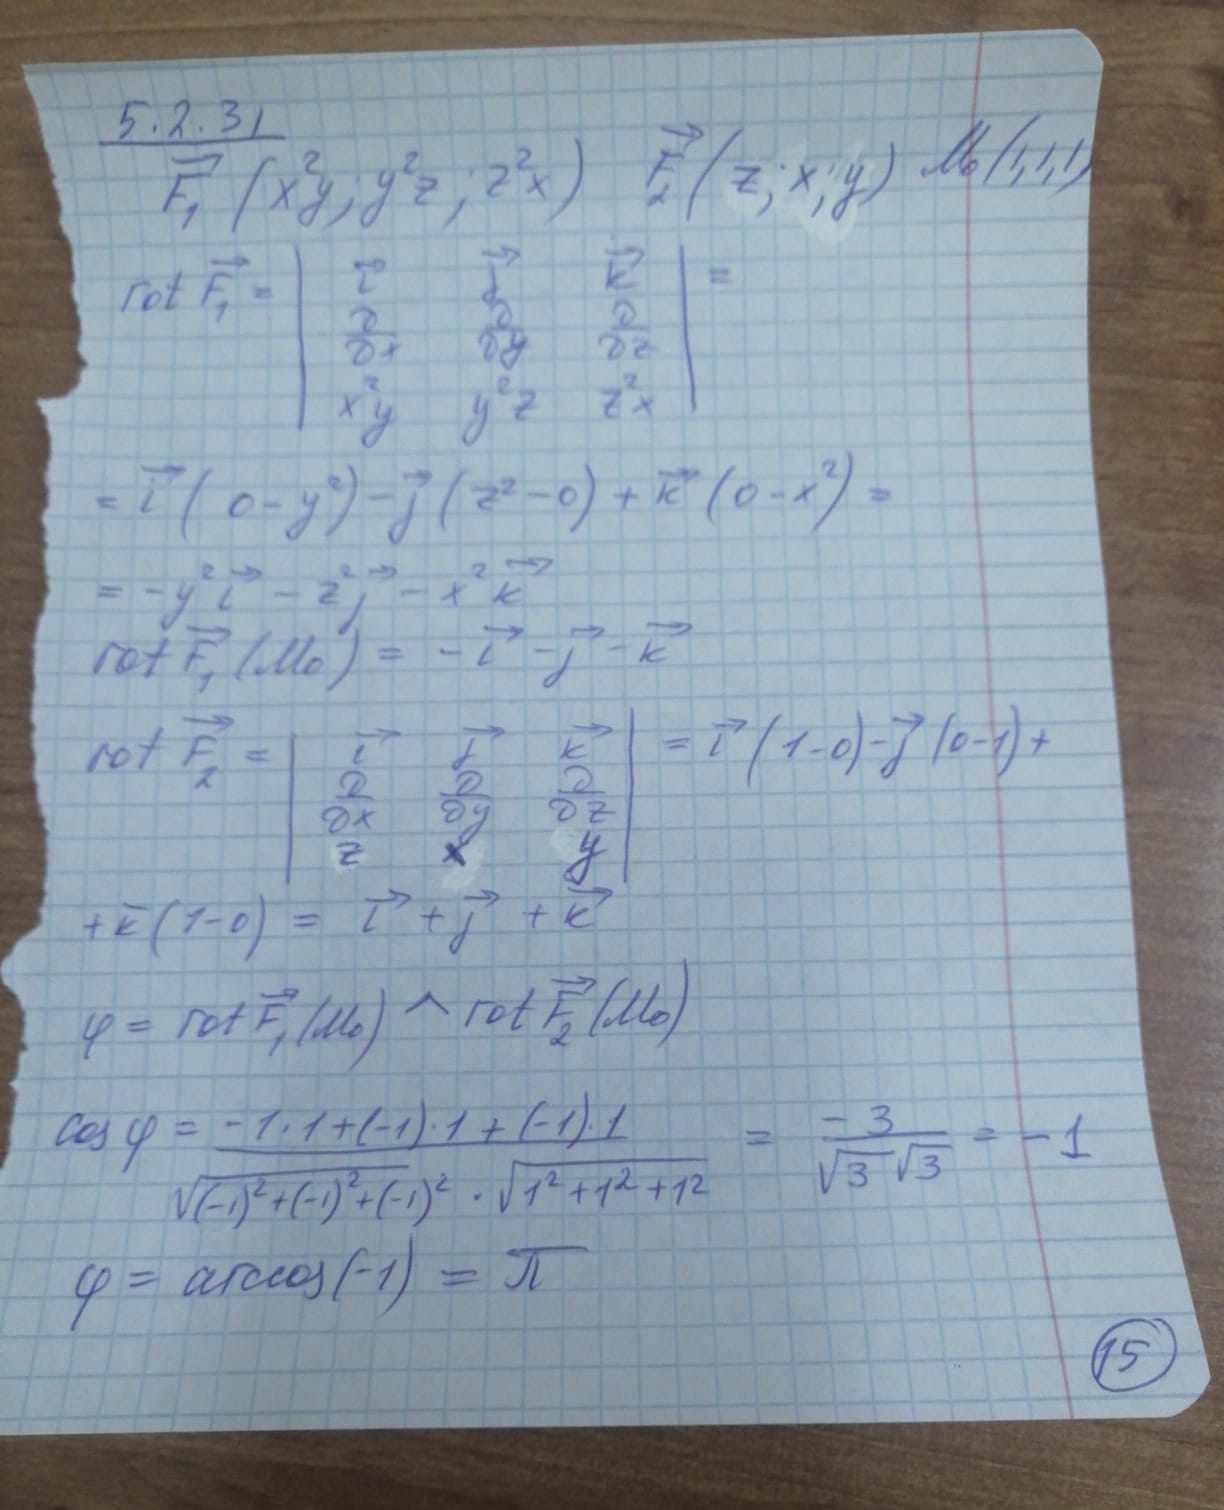 5.2.31
F⃗₁ (x²y; y²z; z²x) F⃗₂ (z; x; y) M₀(1,1,1)
rot F⃗₁ = | i⃗ j⃗ k⃗ | =
∂/∂x ∂/∂y ∂/∂z
x²y y²z z²x
= i⃗ (0 - y²) - j⃗ (z² - 0) + k⃗ (0 - x²) =
= -y² i⃗ - z² j⃗ - x² k⃗
rot F⃗₁ (M₀) = -i⃗ - j⃗ - k⃗
rot F⃗₂ = | i⃗ j⃗ k⃗ | = i⃗ (1-0) - j⃗ (0-1) +
∂/∂x ∂/∂y ∂/∂z
z x y
+ k⃗ (1-0) = i⃗ + j⃗ + k⃗
φ = rot F⃗₁ (M₀) ^ rot F⃗₂ (M₀)
cos φ = (-1·1+(-1)·1+(-1)·1) / (√(-1)²+(-1)²+(-1)² · √1²+1²+1²) = -3 / (√3 √3) = -1
φ = arccos(-1) = π
15